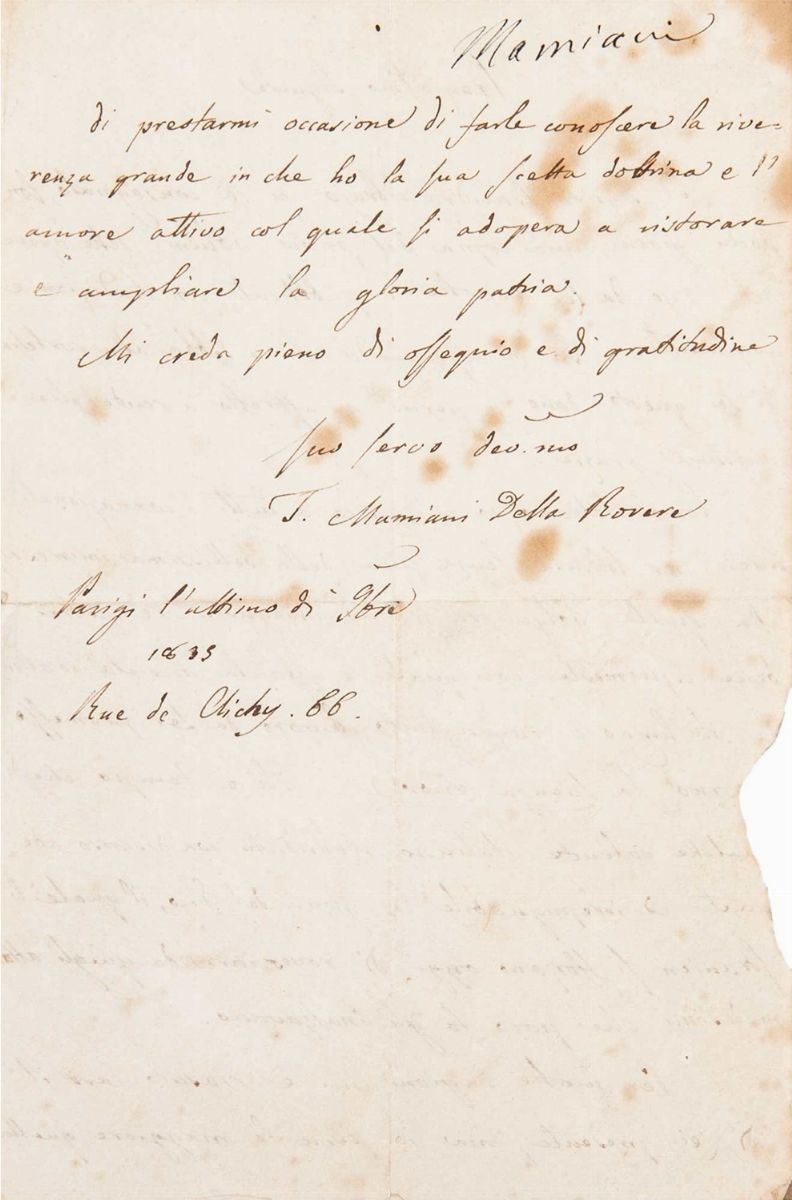 Mamiani
di prestarmi occasione di farle conoscere la rive=
renza grande in che ho la sua scelta dottrina e l'
amore attivo col quale si adopera a ristorare
e ampliare la gloria patria.
Mi creda pieno di ossequio e di gratitudine
suo servo dev.mo
T. Mamiani Della Rovere
Parigi l'ultimo di 9bre
1835
Rue de Clichy. 66.